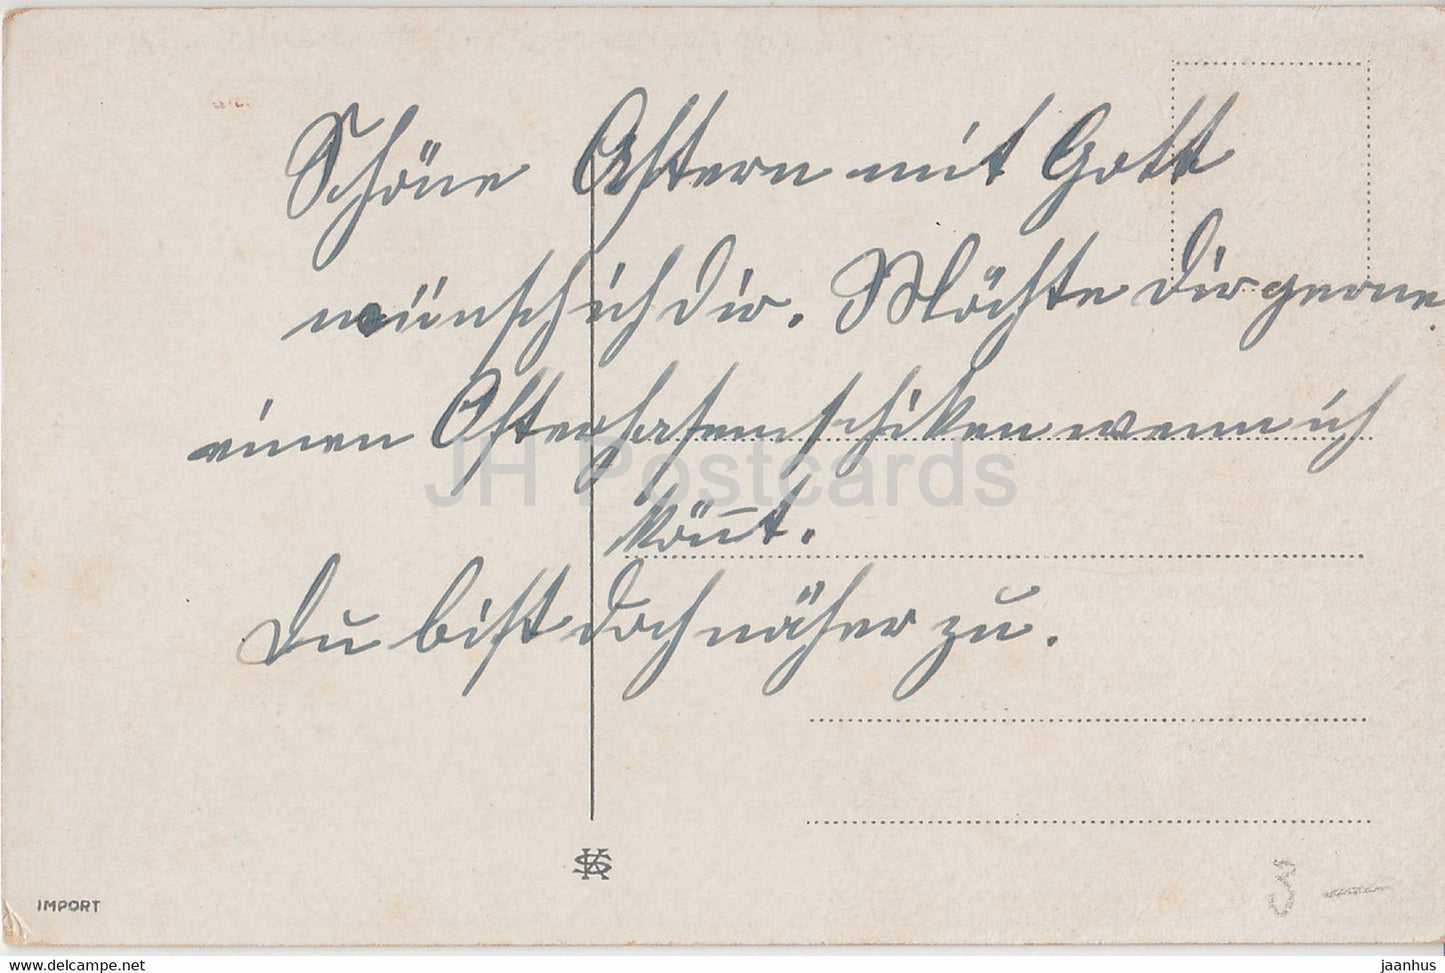 Schöne Ostern mit Gott
wünsch ich dir. Möchte dir gerne
einen Osterhasen schiken wenn ich
könnt.
Du bist doch näher zu.
JH Postcards
IMPORT
3 —
www.delcampe.net
jaanhus